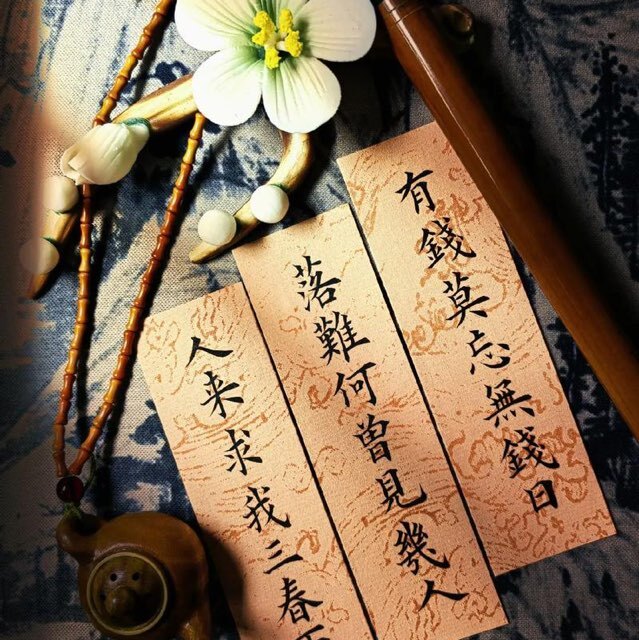 有錢莫忘無錢日
落難何曾見幾人
人来求我三春